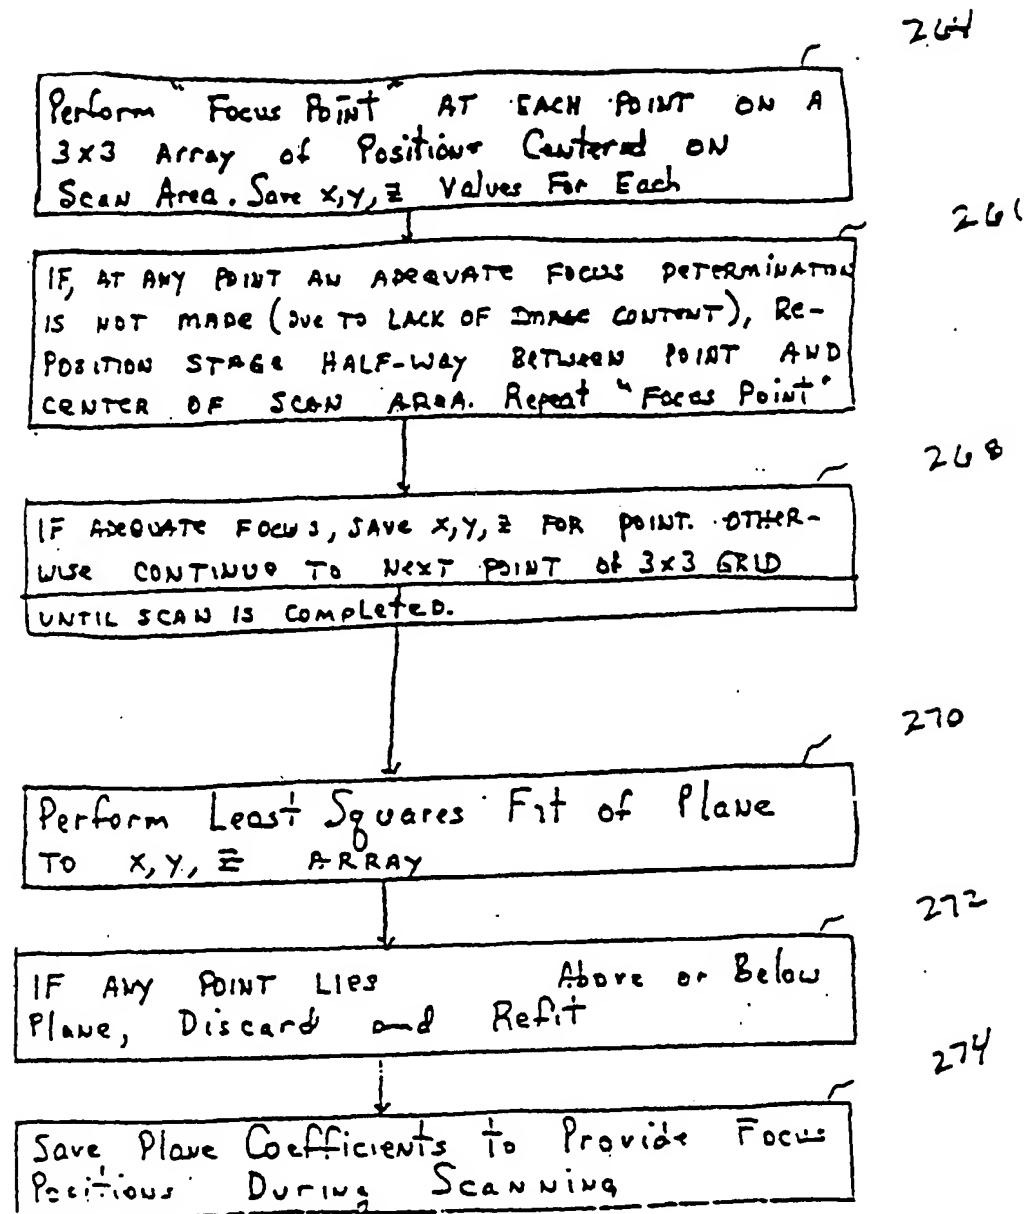 264
Perform "Focus Point" AT EACH POINT ON A
3x3 Array of Positions Centered ON
Scan Area. Save x,y,z Values For Each
IF, AT ANY POINT AN ADEQUATE FOCUS DETERMINATION
IS NOT MADE (DUE TO LACK OF IMAGE CONTENT), RE-
POSITION STAGE HALF-WAY BETWEEN POINT AND
CENTER OF SCAN AREA. Repeat "Focus Point"
268
IF ADEQUATE FOCUS, SAVE X,Y,Z FOR POINT. OTHER-
WISE CONTINUE TO NEXT POINT of 3x3 GRID
UNTIL SCAN IS COMPLETED.
270
Perform Least Squares Fit of Plane
TO X,Y,Z ARRAY
272
IF ANY POINT LIES Above or Below
Plane, Discard and Refit
274
Save Plane Coefficients to Provide Focus
Positions During Scanning